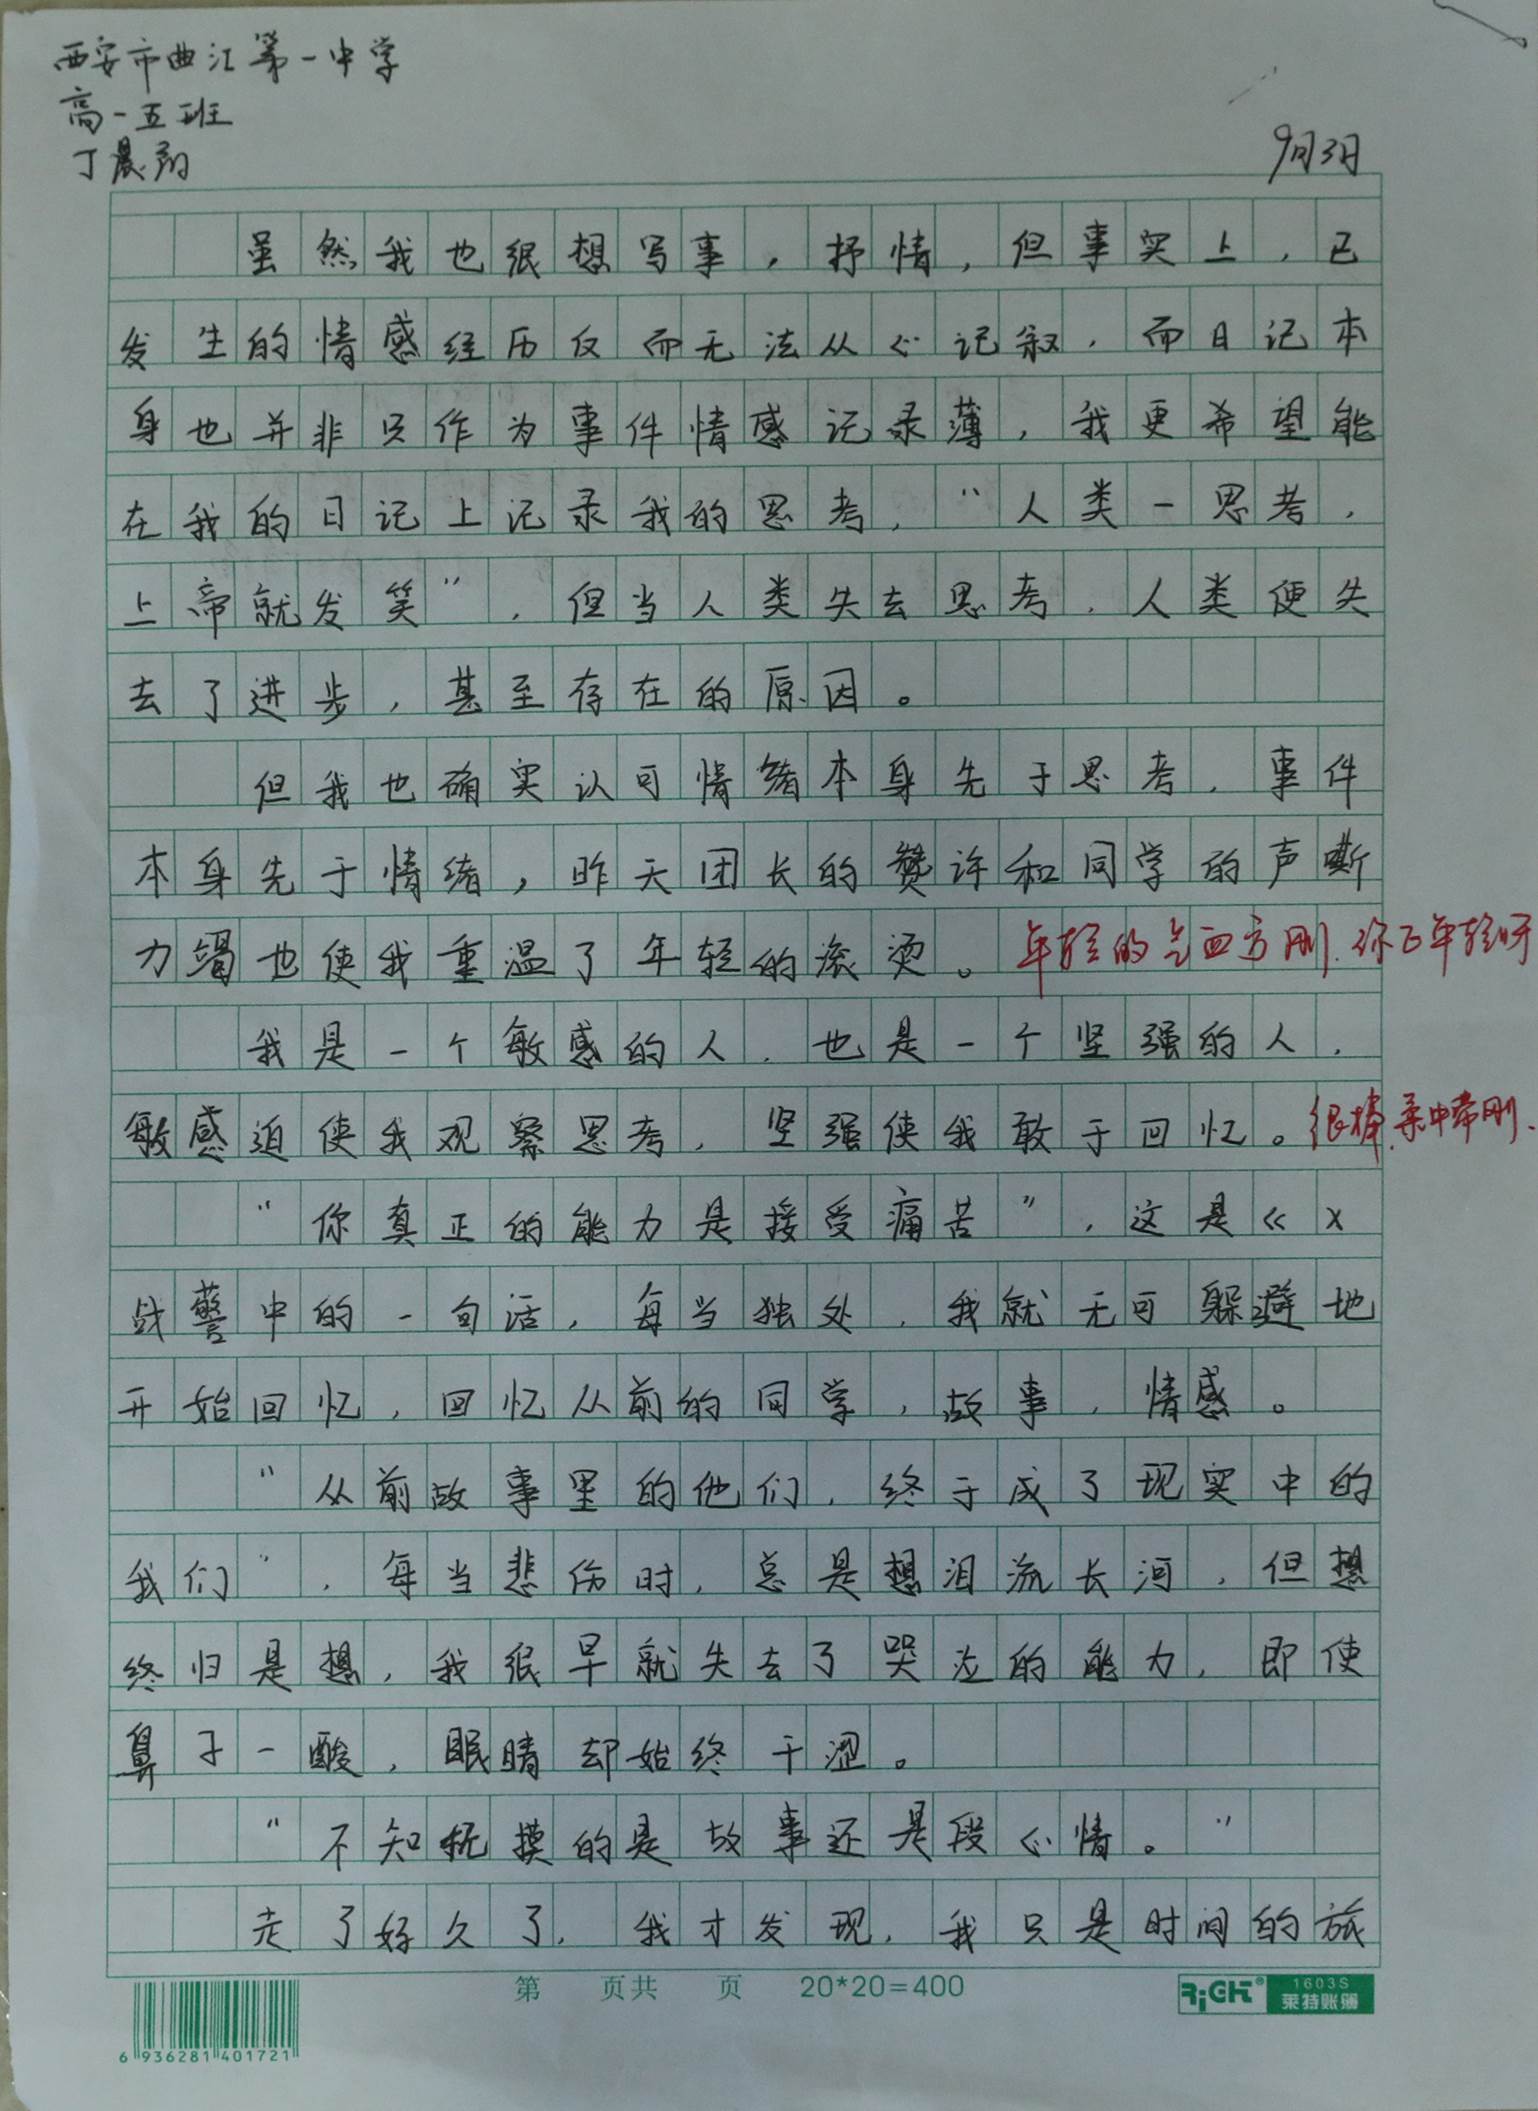 西安市曲江第一中学
高一五班
丁晨
9月3日
虽然我也很想写事，抒情，但事实上，已
发生的情感经历反而无法从心记叙，而日记本
身也并非只作为事件情感记录薄，我更希望能
在我的日记上记录我的思考，“人类一思考，
上帝就发笑”，但当人类失去思考，人类便失
去了进步，甚至存在的原因。
但我也确实认可情绪本身先于思考，事件
本身先于情绪，昨天团长的赞许和同学的声嘶
力竭也使我重温了年轻的滚烫。年轻的气血方刚，你正年轻呀
我是一个敏感的人，也是一个坚强的人，
敏感迫使我观察思考，坚强使我敢于回忆。很棒，柔中带刚、
“你真正的能力是接受痛苦”，这是《X
战警中的一句话，每当独处，我就无可躲避地
开始回忆，回忆从前的同学，故事，情感。
“从前故事里的他们，终于成了现实中的
我们”，每当悲伤时，总是想泪流长河，但想
终归是想，我很早就失去了哭泣的能力，即使
鼻子一酸，眼睛却始终干涩。
“不知抚摸的是故事还是段心情。”
走了好久了，我才发现，我只是时间的旅
第 页共 页 20*20=400
RiGHT® 1603S
莱特账簿
6 936281 401721